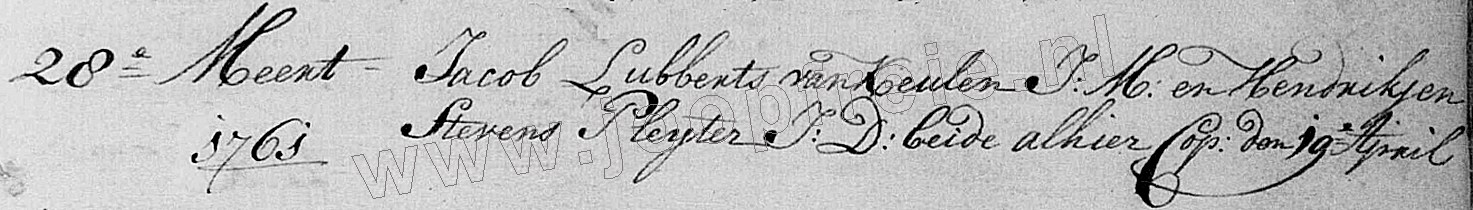 28e Meert - Jacob Lubberts van Keulen J: M: en Hendrikjen
1761 Stevens Pleyter J: D: beide alhier Cop: den 19e April